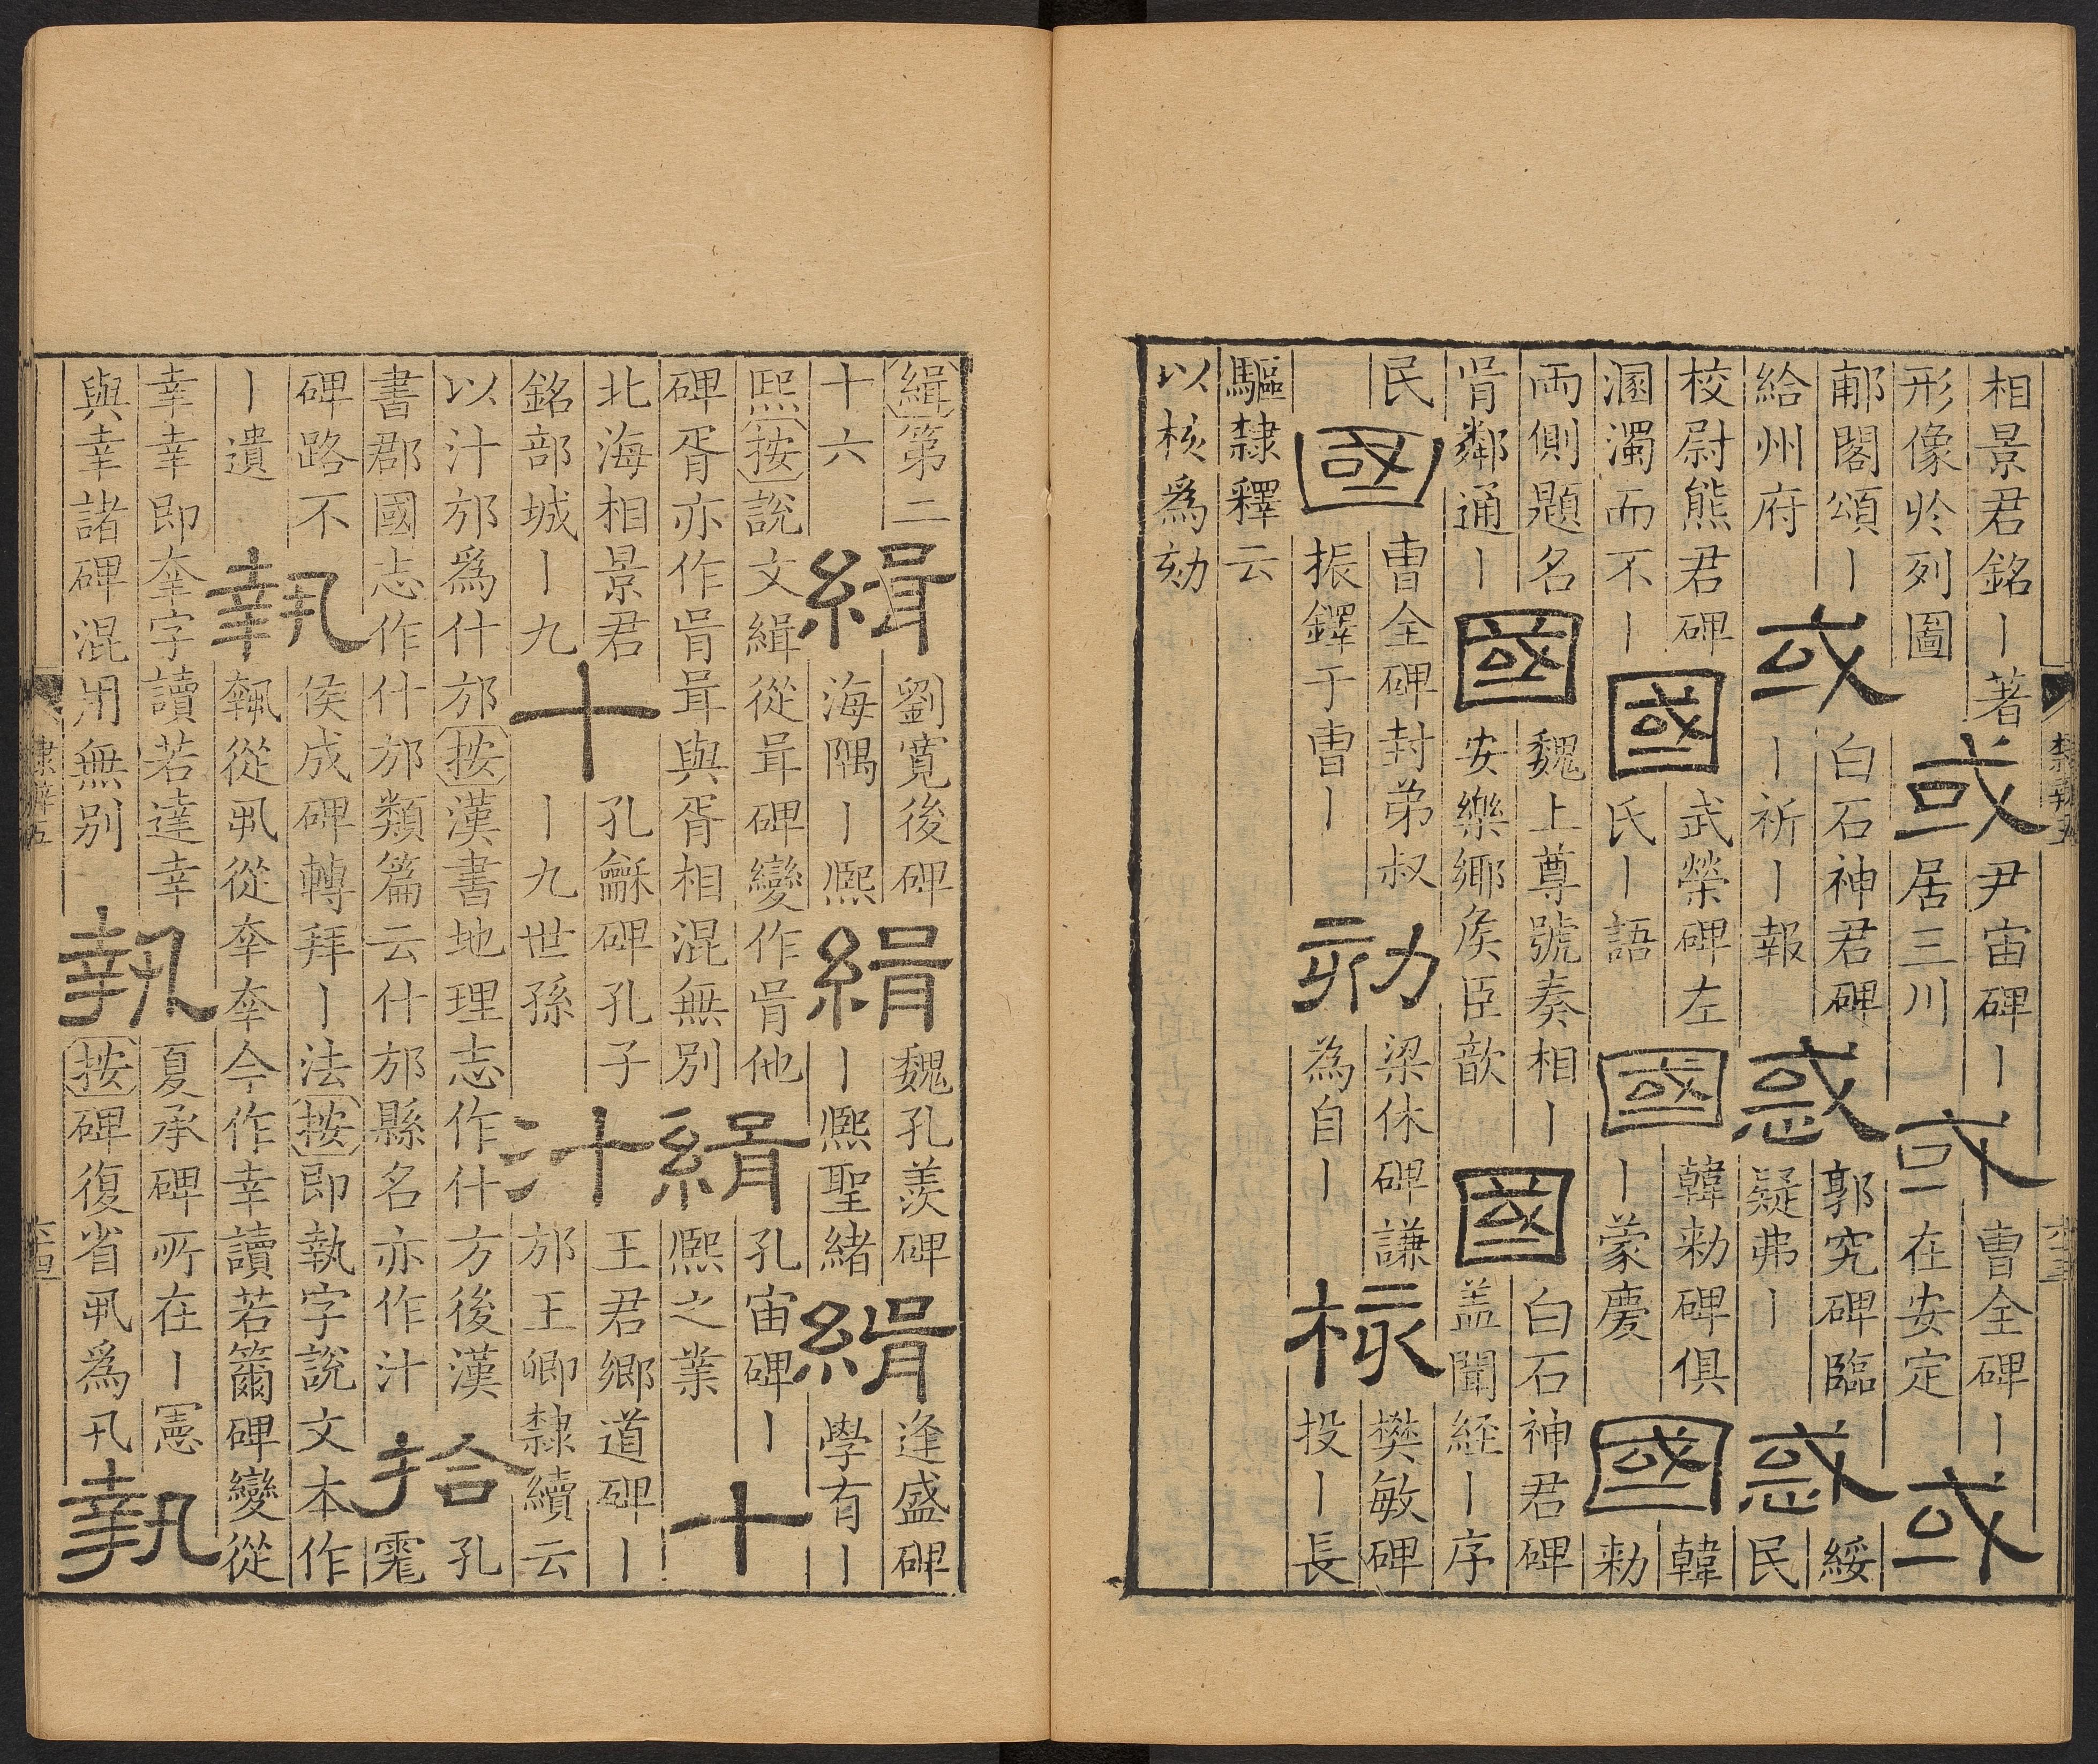 相景君銘丨著
形像於列圖
或
尹宙碑丨
居三川
或
曹全碑丨
在安定
或
郙閣頌丨
給州府
或
白石神君碑
丨祈丨報
惑
郭究碑臨
疑弗丨
惑
綏
民
校尉熊君碑
溷濁而不丨
國
武榮碑左
氏丨語
國
韓勑碑俱
丨蒙慶
國
韓
勑
两側題名
肻鄰通丨
國
魏上尊號奏相丨
安樂鄉矦臣歆
國
白石神君碑
盖聞経丨序
民
國
曹全碑封弟叔
振鐸于曹丨
劾
梁休碑謙
為自丨
核
樊敏碑
投丨長
驅隸釋云
以核爲劾
隸辨五
六十三
緝第二
十六
緝
劉寬後碑
海隅丨熈
緝
魏孔羨碑
丨熈聖緒
緝
逢盛碑
學有丨
熙按說文緝從咠碑變作肻他
碑胥亦作肻咠與胥相混無別
緝
孔宙碑丨
熈之業
十
北海相景君
銘部城丨九
十
孔龢碑孔子
丨九世孫
汁
王君鄉道碑丨
邡王卿隸續云
以汁邡爲什邡按漢書地理志作什方後漢
書郡國志作什邡類篇云什邡縣名亦作汁
拾
孔
雿
碑路不
丨遺
執
侯成碑轉拜丨法按即執字說文本作
𡙕從丮從㚔㚔今作幸讀若籋碑變從
幸幸即羍字讀若達幸
與幸諸碑混用無別
執
夏承碑所在丨憲
按碑復省丮爲卂
執
隸辨五